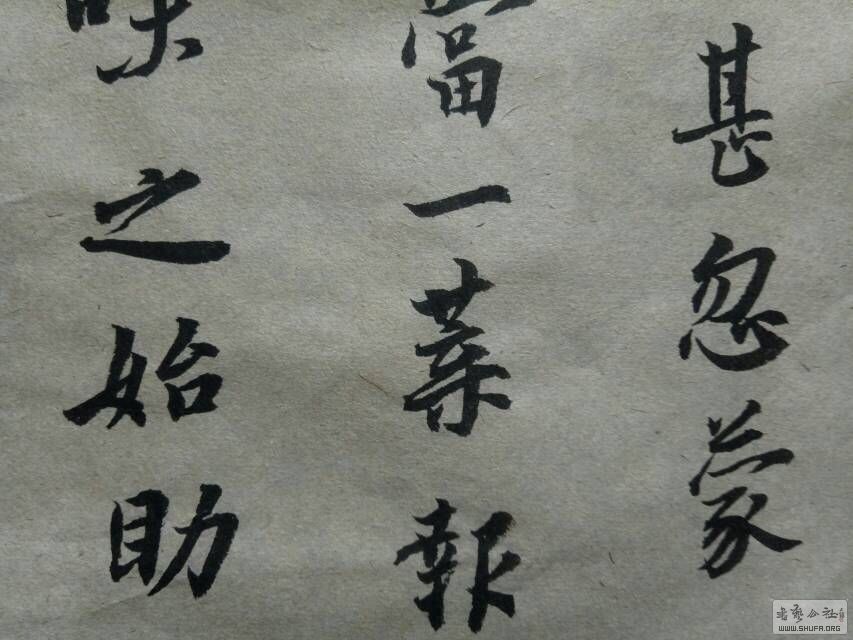 甚忽蒙
當一葉報
味之始助
書藝公社
WWW.SHUFA.ORG